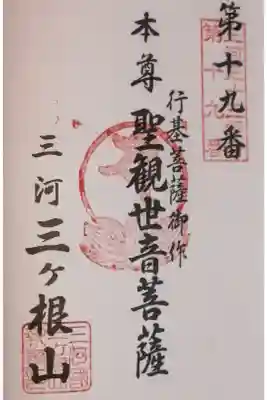 第十九番
行基菩薩御作
本尊聖観世音菩薩
三河三ヶ根山